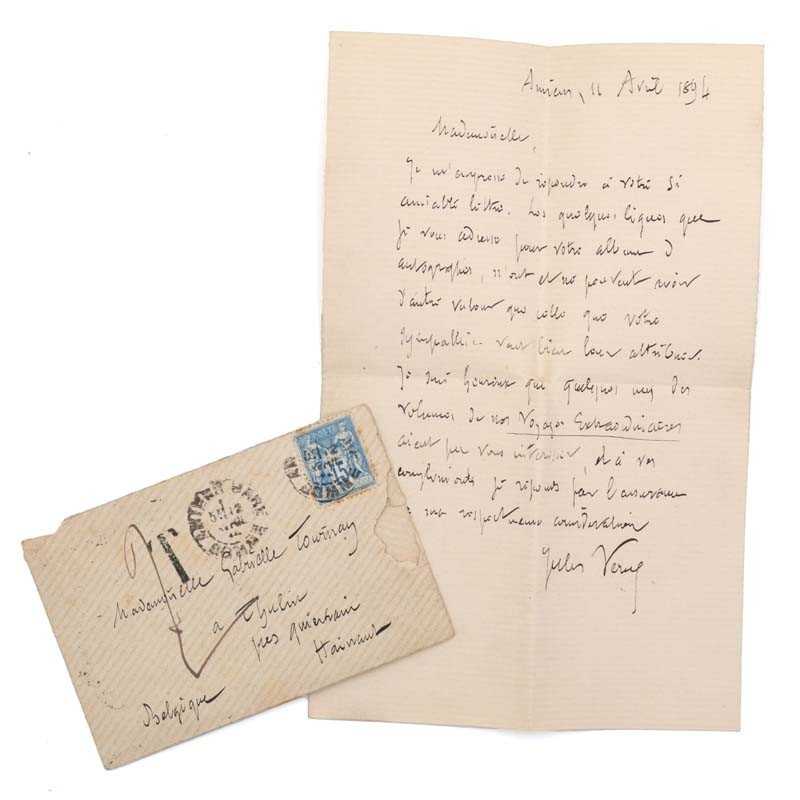 Amiens, 11 Avril 1894
Mademoiselle,
Je m'empresse de répondre à votre si
aimable lettre. Les quelques lignes que
je vous adresse pour votre album d
autographes, n'ont et ne peuvent avoir
d'autre valeur que celle que votre
sympathie veut bien leur attribuer.
Je suis heureux que quelques uns des
volumes de nos Voyages Extraordinaires
aient pu vous intéresser, et à vos
compliments je réponds par l'assurance
de ma respectueuse considération
Jules Verne
15
T
Mademoiselle Gabrielle Tournay
à Thulin
près Quiévrain
Hainaut
Belgique